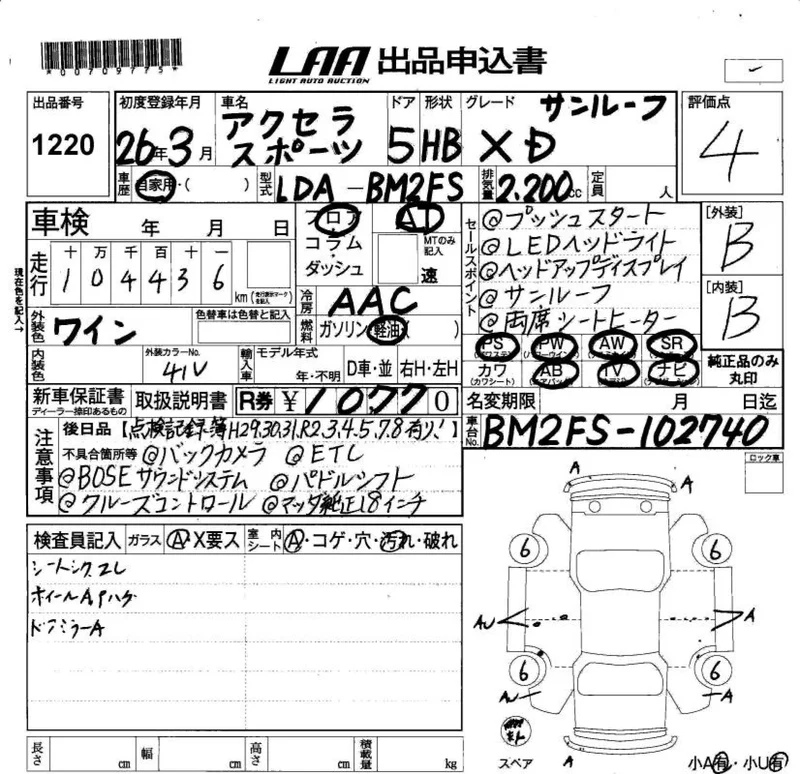 *00709775*
LAA 出品申込書
LIGHT AUTO AUCTION
出品番号 1220
初度登録年月 26年3月
車名 アクセラ スポーツ
ドア 5
形状 HB
グレード サンルーフ
XD
評価点 4
車歴 自家用・( )
型式 LDA-BM2FS
排気量 2.200cc
定員 人
車検 年 月 日
フロア・コラム・ダッシュ
AT
MTのみ記入
速
セールスポイント
@プッシュスタート
@LEDヘッドライト
@ヘッドアップディスプレイ
@サンルーフ
@両席シートヒーター
[外装] B
[内装] B
現在色を記入→
走行 十 万 千 百 十 一
1 0 4 4 3 6 km
(走行表示マークを記入)
冷房 AAC
外装色 ワイン
色替車は色替と記入
燃料 ガソリン(軽油)( )
PS PW AW SR
カワ (カワシート) AB TV ナビ
純正品のみ丸印
内装色
外装カラーNo. 41V
輸入車 モデル年式 年・不明
D車・並 右H・左H
新車保証書 ディーラー捺印あるもの
取扱説明書
R券 ¥10770
名変期限 月 日迄
車台No. BM2FS-102740
注意事項
後日品【点検記録簿H29,30,31,R2,3,4,5,7,8有り!】
不具合箇所等 @バックカメラ @ETC
@BOSEサウンドシステム @パドルシフト
@クルーズコントロール @マツダ純正18インチ
ロック車
検査員記入 ガラス A・X要ス 室内シート A・コゲ・穴・汚れ・破れ
ホイールAPハゲ
ドアミラーA
A
A
6 6
AU A
6 6
AU A
スペア A
小A有・小U有
長さ cm 幅 cm 高さ cm 積載量 kg